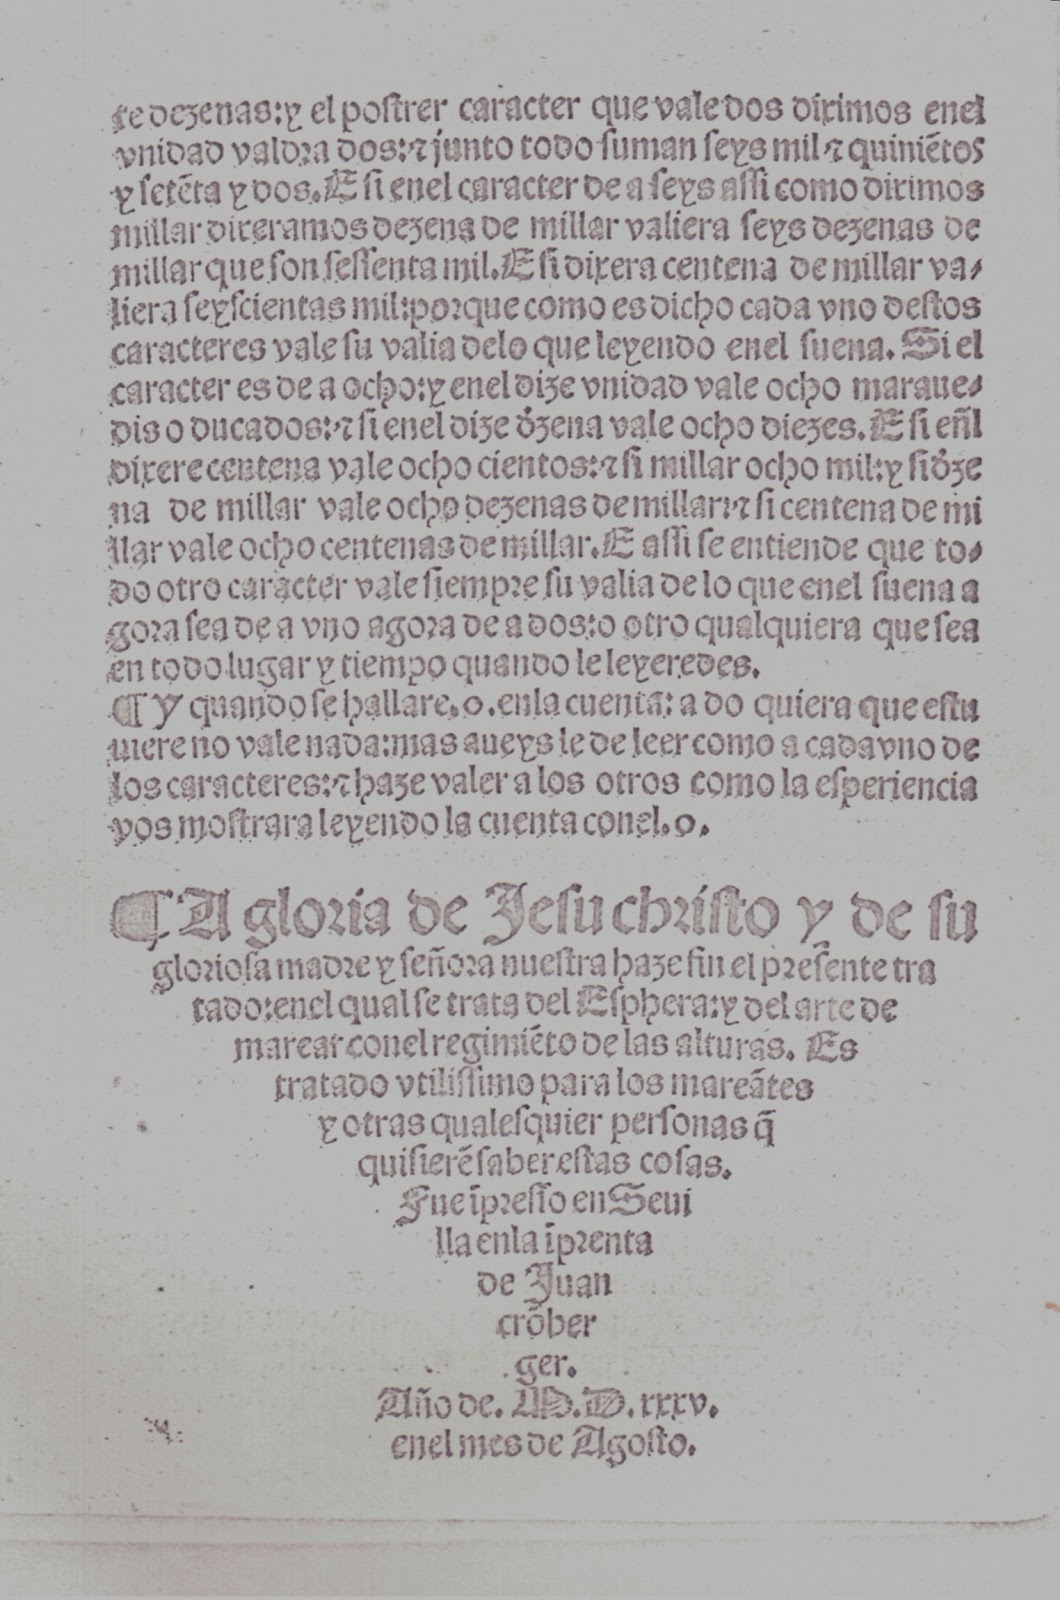 te dezenas:y el postrer caracter que vale dos diximos enel
vnidad valdra dos:⁊ junto todo suman seys mil ⁊ quiniẽtos
y setẽta y dos. E si enel caracter de a seys assi como diximos
millar dixeramos dezena de millar valiera seys dezenas de
millar que son sessenta mil. E si dixera centena de millar va-
liera seyscientas mil:porque como es dicho cada vno destos
caracteres vale su valia delo que leyendo enel suena. Si el
caracter es de a ocho:y enel dize vnidad vale ocho maraue-
dis o ducados:⁊ si enel dize d̓zena vale ocho diezes. E si eñl
dixere centena vale ocho cientos:⁊ si millar ocho mil:y si d̓ze
na de millar vale ocho dezenas de millar:⁊ si centena de mi
llar vale ocho centenas de millar. E assi se entiende que to-
do otro caracter vale siempre su valia de lo que enel suena a
gora sea de a vno agora de a dos:o otro qualquiera que sea
en todo lugar y tiempo quando le leyeredes.
¶ Y quando se hallare.o.enla cuenta: a do quiera que estu
uiere no vale nada:mas aueys le de leer como a cada vno de
los caracteres:⁊ haze valer a los otros como la esperiencia
vos mostrara leyendo la cuenta conel.o.
¶ A gloria de Jesu christo y de su
gloriosa madre y señora nuestra haze fin el presente tra
tado:enel qual se trata del Esphera:y del arte de
marear conel regimiẽto de las alturas. Es
tratado vtilissimo para los mareãtes
y otras qualesquier personas q̃
quisierẽ saber estas cosas.
Fue ĩpresso en Seui
lla enla ĩprenta
de Juan
crõber
ger.
Año de. M.D.xxxv.
enel mes de Agosto.